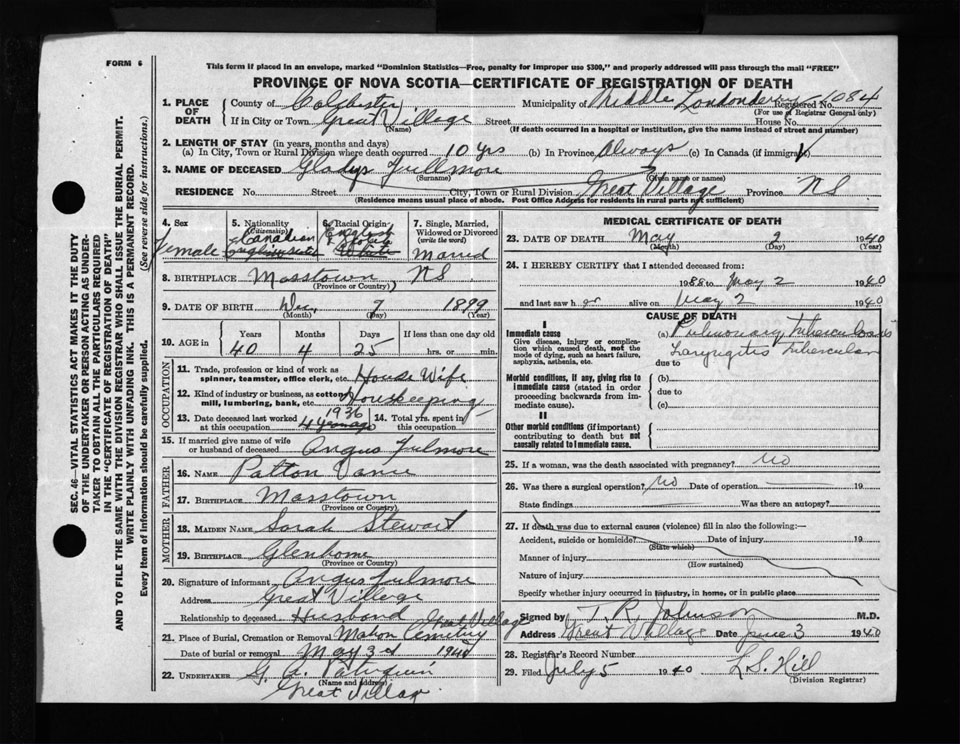 FORM 6
This form if placed in an envelope, marked "Dominion Statistics—Free, penalty for improper use $300," and properly addressed will pass through the mail "FREE"
PROVINCE OF NOVA SCOTIA—CERTIFICATE OF REGISTRATION OF DEATH
1. PLACE OF DEATH
County of Colchester Municipality of Middle Londonderry Registered No. 1084
(For use of Registrar General only)
If in City or Town Great Village Street House No.
(Name) (If death occurred in a hospital or institution, give the name instead of street and number)
2. LENGTH OF STAY (in years, months and days)
(a) In City, Town or Rural Division where death occurred 10 yrs (b) In Province Always (c) In Canada (if immigrant)
3. NAME OF DECEASED Gladys Fullmore
(Surname) (Given name or names)
RESIDENCE No. Street City, Town or Rural Division Great Village Province NS
(Residence means usual place of abode. Post Office Address for residents in rural parts not sufficient)
4. Sex
Female
5. Nationality
(Citizenship)
Canadian
6. Racial Origin
English
White
7. Single, Married, Widowed or Divorced
(write the word)
Married
8. BIRTHPLACE Masstown NS
(Province or Country)
9. DATE OF BIRTH Dec 7 1899
(Month) (Day) (Year)
10. AGE in
Years Months Days If less than one day old
40 4 25 hrs. or min.
OCCUPATION
11. Trade, profession or kind of work as
spinner, teamster, office clerk, etc. House Wife
12. Kind of industry or business, as cotton
mill, lumbering, bank, etc. Housekeeping
13. Date deceased last worked
at this occupation 1936 4 years ago
14. Total yrs. spent in
this occupation
15. If married give name of wife
or husband of deceased Angus Fulmore
FATHER
16. NAME Patton Vance
17. BIRTHPLACE Masstown
(Province or Country)
MOTHER
18. MAIDEN NAME Sarah Stewart
19. BIRTHPLACE Glenholme
(Province or Country)
20. Signature of informant Angus Fulmore
Address Great Village
Relationship to deceased Husband
21. Place of Burial, Cremation or Removal Mahon Cemetery Great Village
Date of burial or removal May 3rd 1940
22. UNDERTAKER G. A.
(Name and address)
Great Village
MEDICAL CERTIFICATE OF DEATH
23. DATE OF DEATH May 2 1940
(Month) (Day)
24. I HEREBY CERTIFY that I attended deceased from:
1938 to May 2 1940
and last saw her alive on May 2 1940
CAUSE OF DEATH
I
Immediate cause
Give disease, injury or complication which caused death, not the mode of dying, such as heart failure, asphyxia, asthenia, etc.
(a) Pulmonary Tuberculosis
Laryngitis Tubercular
due to
Morbid conditions, if any, giving rise to immediate cause (stated in order proceeding backwards from immediate cause).
(b)
due to
(c)
II
Other morbid conditions (if important) contributing to death but not causally related to immediate cause.
25. If a woman, was the death associated with pregnancy? No
26. Was there a surgical operation? No Date of operation 19
State findings Was there an autopsy?
27. If death was due to external causes (violence) fill in also the following:—
Accident, suicide or homicide? Date of injury 19
(State which)
Manner of injury
(How sustained)
Nature of injury
Specify whether injury occurred in industry, in home, or in public place
Signed by T. R. Johnson M.D.
Address Great Village Date June 3 1940
28. Registrar's Record Number
29. Filed July 5 1940 L.S. Hill
(Division Registrar)
SEC. 46—VITAL STATISTICS ACT MAKES IT THE DUTY
OF THE UNDERTAKER OR PERSON ACTING AS UNDER-
TAKER TO OBTAIN ALL THE PARTICULARS REQUIRED
IN THE "CERTIFICATE OF REGISTRATION OF DEATH"
AND TO FILE THE SAME WITH THE DIVISION REGISTRAR WHO SHALL ISSUE THE BURIAL PERMIT.
WRITE PLAINLY WITH UNFADING INK. THIS IS A PERMANENT RECORD.
Every item of information should be carefully supplied. (See reverse side for instructions.)